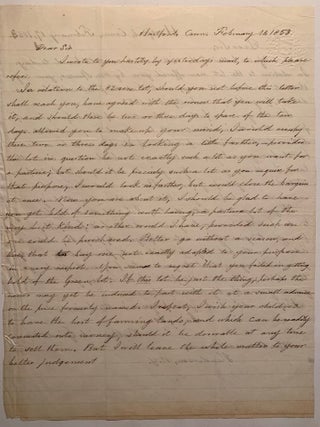 Hartford Conn. February 18, 1853.
Dear Sir
I wrote to you hastily by yesterdays mail, to which please
refer.
In relation to the 42 acre lot, should you not before this letter
shall reach you, have agreed with the owner that you will take
it, and should there be two or three days to spare of the ten
days allowed you to make up your mind, I would employ
those two or three days in looking a little farther, provided
the lot in question be not exactly such a lot as you want for
a pasture; but should it be precisely such a lot as you require for
that purpose, I would look no farther, but would close the bargain
at once. Now you are about it, I should be glad to have
you get hold of something worth having; a pasture lot of the
very best kind; no other would I have, provided such an
one could be purchased. Better go without a season, and
even that buy one not exactly adapted to your purposes
in every respect. You seem to regret that you failed in getting
hold of the Green lot. If this lot be just the thing, perhaps the
owner may yet be induced to part with it at a small advance
on the price formerly named. I repeat, I wish your children
to have the best of farming lands, and which can be readily
converted into money, should it be desirable at any time
to sell them. But I will leave the whole matter to your
better judgement